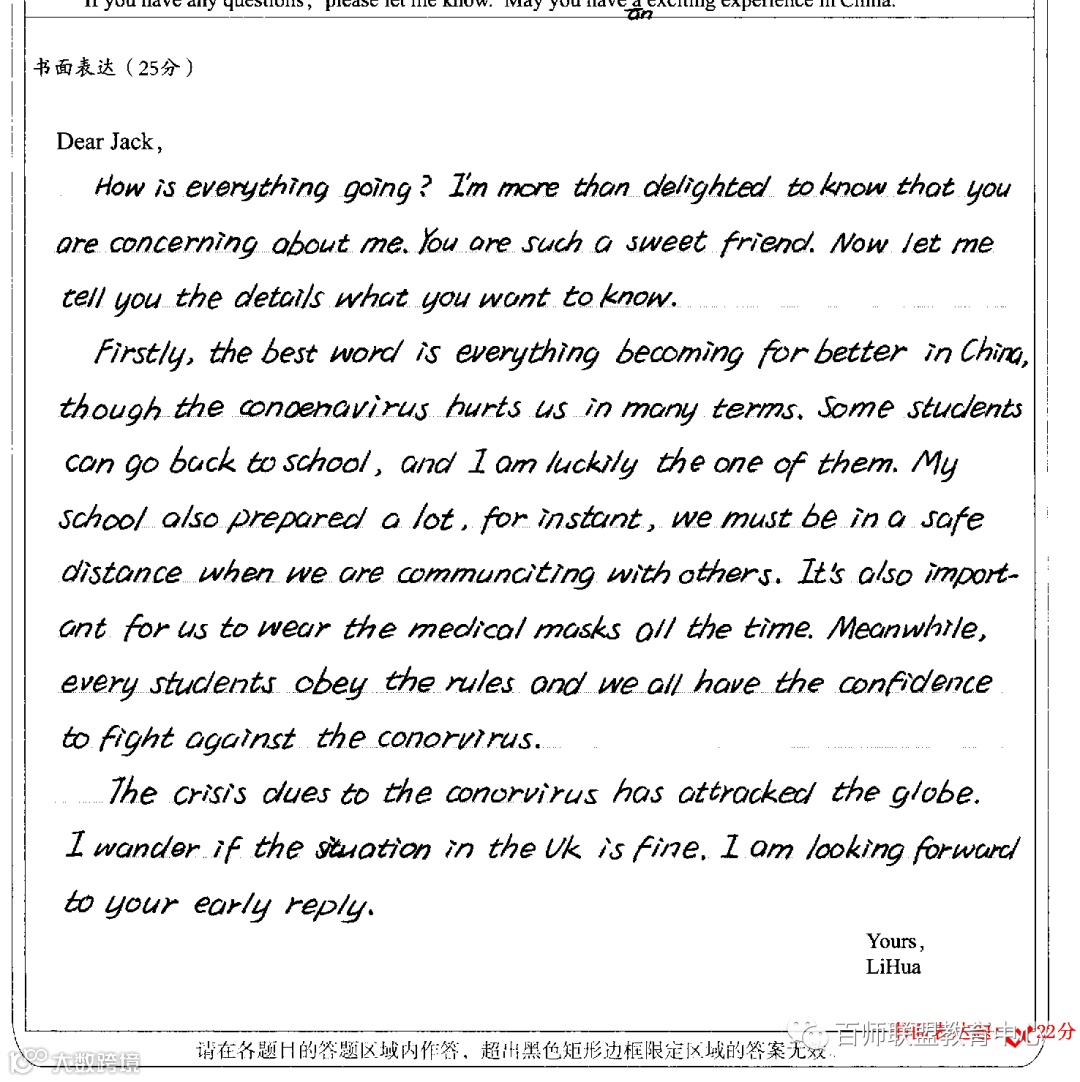 If you have any questions, please let me know. May you have a exciting experience in China.
an
书面表达（25分）
Dear Jack,
How is everything going? I'm more than delighted to know that you
are concerning about me. You are such a sweet friend. Now let me
tell you the details what you want to know.
Firstly, the best word is everything becoming for better in China,
though the conoenavirus hurts us in many terms. Some students
can go back to school, and I am luckily the one of them. My
school also prepared a lot, for instant, we must be in a safe
distance when we are communciting with others. It's also import-
ant for us to wear the medical masks all the time. Meanwhile,
every students obey the rules and we all have the confidence
to fight against the conorvirus.
The crisis dues to the conorvirus has attracked the globe.
I wander if the situation in the Uk is fine. I am looking forward
to your early reply.
Yours,
LiHua
22分
百师联盟教育中心
请在各题目的答题区域内作答，超出黑色矩形边框限定区域的答案无效
大数跨境